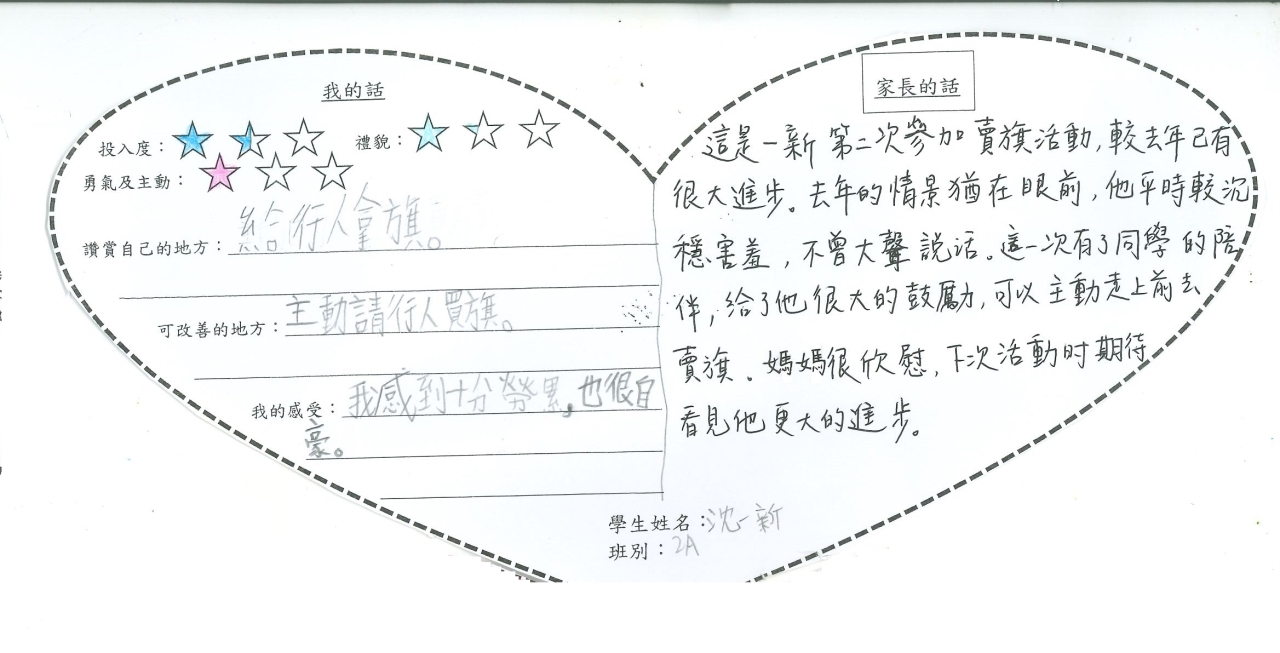 我的話
投入度：
禮貌：
勇氣及主動：
讚賞自己的地方：給行人拿旗。
可改善的地方：主動請行人買旗。
我的感受：我感到十分勞累，也很自
豪。
家長的話
這是一新第二次參加賣旗活動，較去年已有
很大進步。去年的情景猶在眼前，他平時較沉
穩害羞，不曾大聲説话。這一次有了同學的陪
伴，给了他很大的鼓勵，可以主動走上前去
賣旗。媽媽很欣慰，下次活動时期待
看見他更大的進步。
學生姓名：沈一新
班別：2A